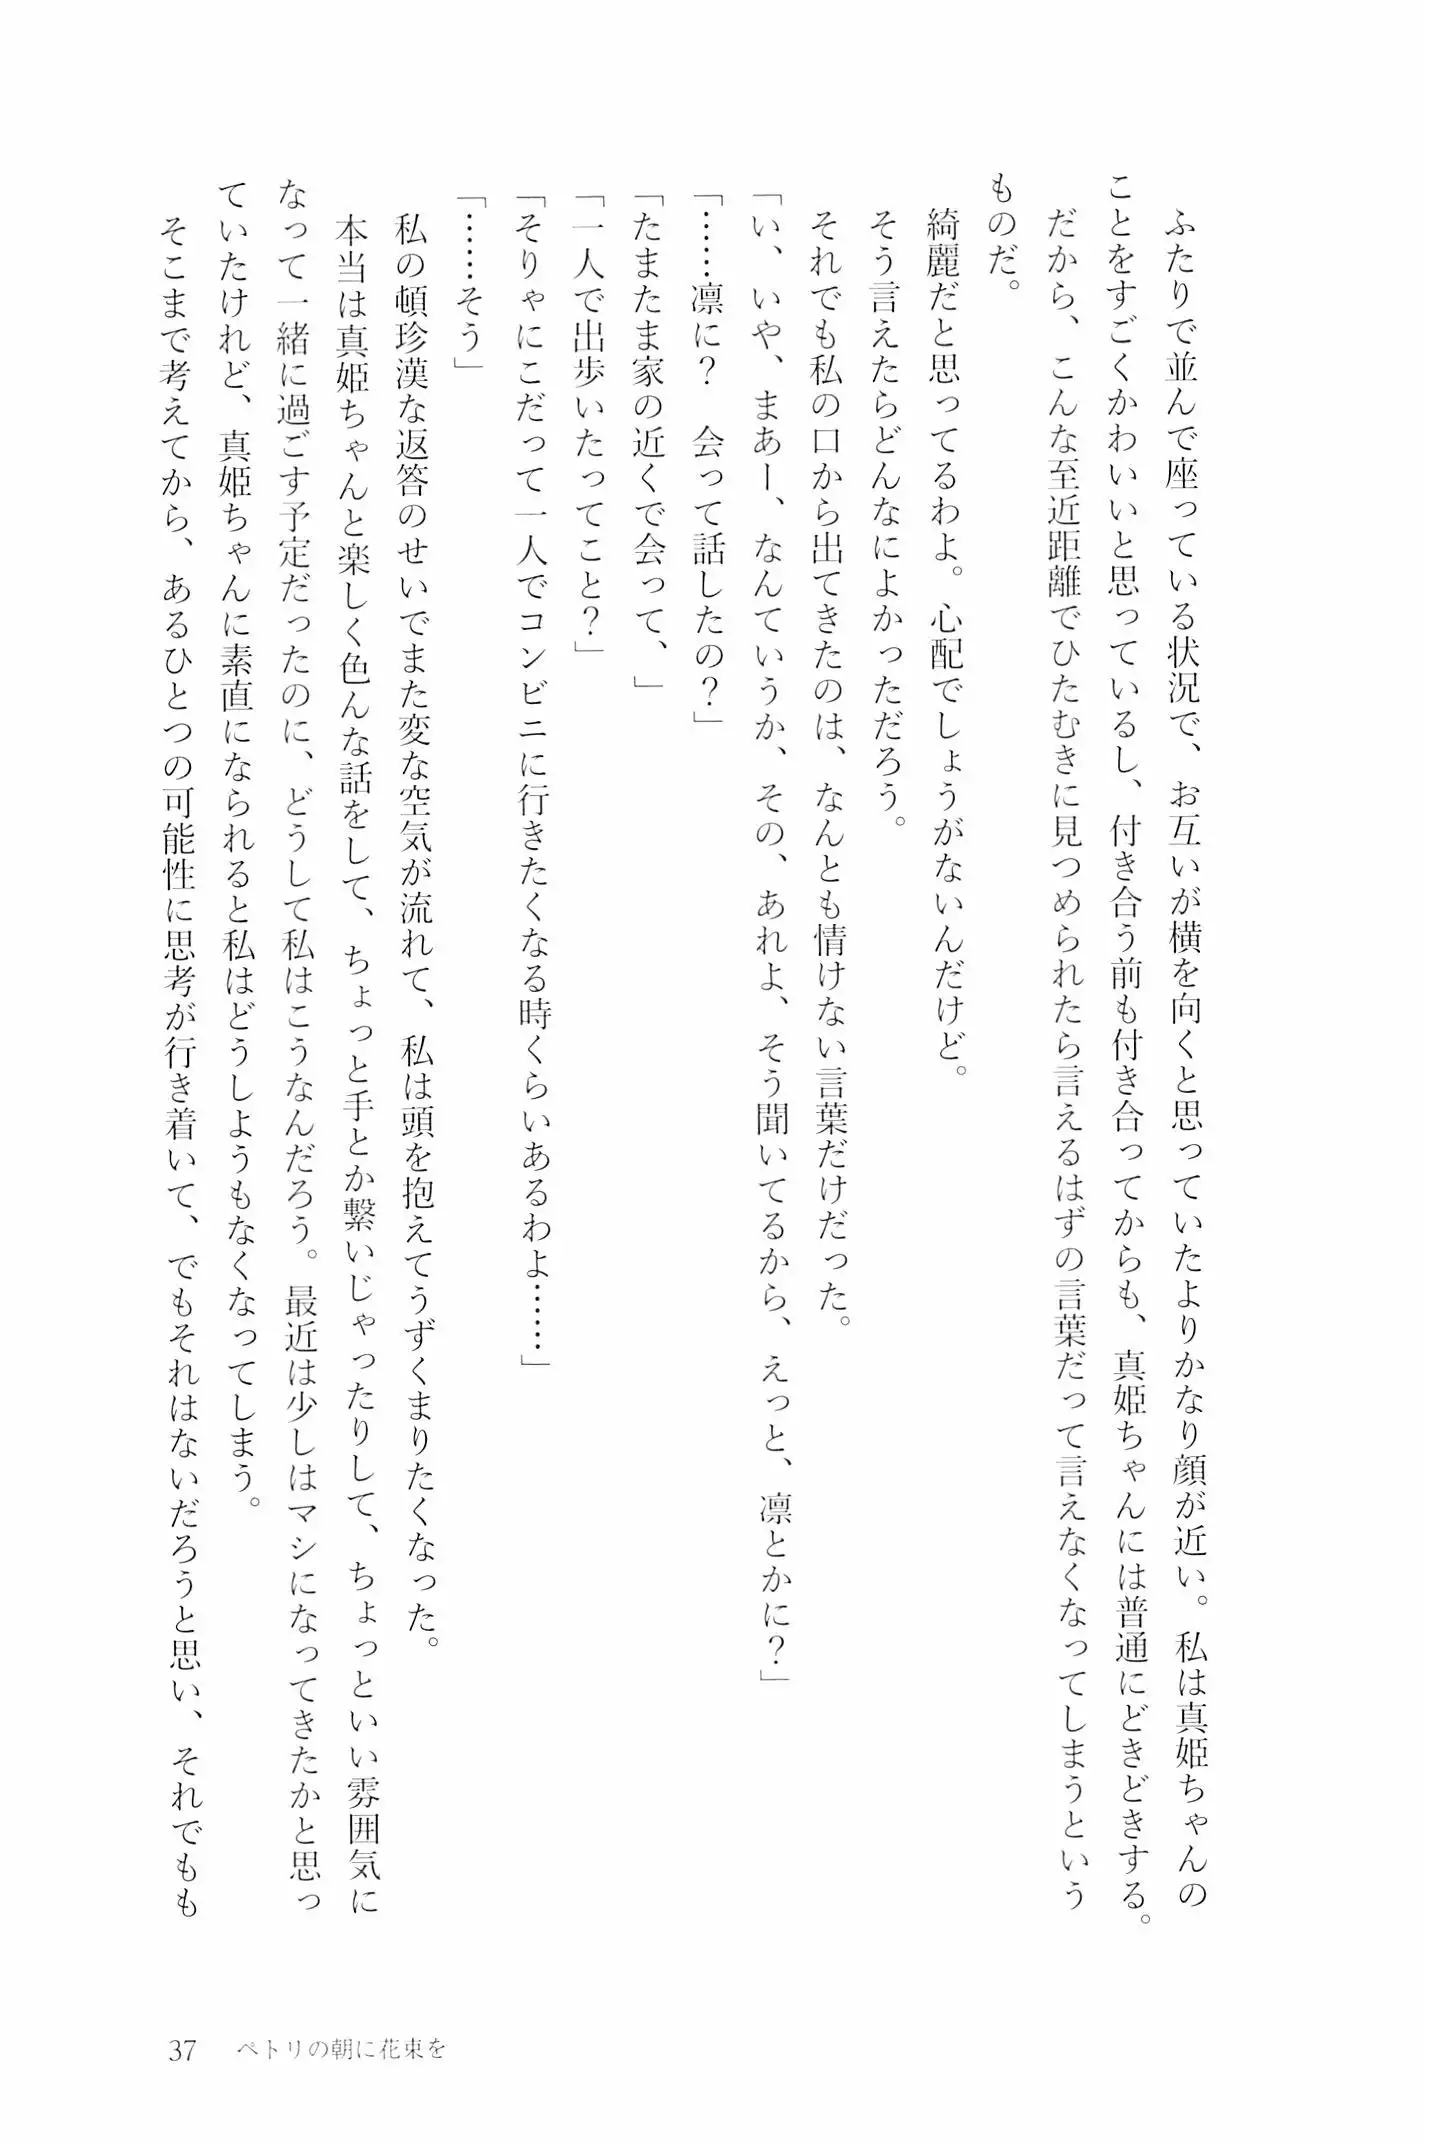 ふたりで並んで座っている状況で、お互いが横を向くと思っていたよりかなり顔が近い。私は真姫ちゃんの
ことをすごくかわいいと思っているし、付き合う前も付き合ってからも、真姫ちゃんには普通にどきどきする。
だから、こんな至近距離でひたむきに見つめられたら言えるはずの言葉だって言えなくなってしまうという
ものだ。
綺麗だと思ってるわよ。心配でしょうがないんだけど。
そう言えたらどんなによかっただろう。
それでも私の口から出てきたのは、なんとも情けない言葉だけだった。
「い、いや、まあー、なんていうか、その、あれよ、そう聞いてるから、えっと、凛とかに？」
「……凛に？　会って話したの？」
「たまたま家の近くで会って、」
「一人で出歩いたってこと？」
「そりゃにこだって一人でコンビニに行きたくなる時くらいあるわよ……」
「……そう」
私の頓珍漢な返答のせいでまた変な空気が流れて、私は頭を抱えてうずくまりたくなった。
本当は真姫ちゃんと楽しく色んな話をして、ちょっと手とか繋いじゃったりして、ちょっといい雰囲気に
なって一緒に過ごす予定だったのに、どうして私はこうなんだろう。最近は少しはマシになってきたかと思っ
ていたけれど、真姫ちゃんに素直になられると私はどうしようもなくなってしまう。
そこまで考えてから、あるひとつの可能性に思考が行き着いて、でもそれはないだろうと思い、それでもも
37　ペトリの朝に花束を